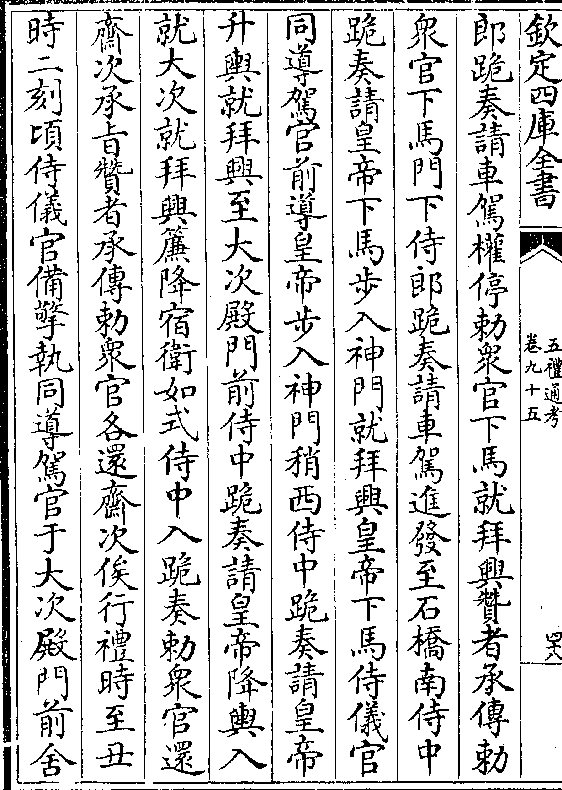 欽定四庫全書
五禮通考
卷九十五
四十八
郎跪奏請車駕權停勅衆官下馬就拜興贊者承傳勅
衆官下馬門下侍郎跪奏請車駕進發至石橋南侍中
跪奏請皇帝下馬步入神門就拜興皇帝下馬侍儀官
同導駕官前導皇帝步入神門稍西侍中跪奏請皇帝
升輿就拜興至大次殿門前侍中跪奏請皇帝降輿入
就大次就拜興簾降宿衛如式侍中入跪奏勅衆官還
齋次承旨贊者承傳勅衆官各還齋次俟行禮時至丑
時二刻頃侍儀官備擎執同導駕官于大次殿門前舍